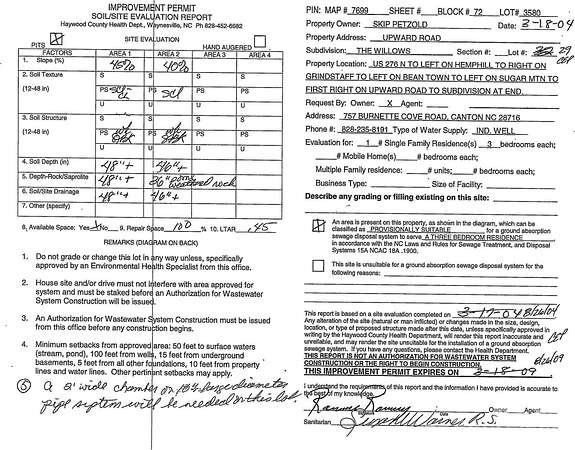 IMPROVEMENT PERMIT
SOIL/SITE EVALUATION REPORT
Haywood County Health Dept., Waynesville, NC Ph 828-452-6682
SITE EVALUATION
PITS X HAND AUGERED
FACTORS AREA 1 AREA 2 AREA 3 AREA 4
1. Slope (%) 45% 40%
2. Soil Texture S S S S
(12-48 in) PS SCL-CL PS SCL PS PS
U U U U
3. Soil Structure S S S S
(12-48 in) PS PS PS PS
U U U U
4. Soil Depth (in) 48"+ 46"+
5. Depth-Rock/Saprolite 48"+ 36" some weathered rock
6. Soil/Site Drainage 48"+ 46"+
7. Other (specify)
8. Available Space: Yes X No 9. Repair Space 100 % 10. LTAR .45
REMARKS (DIAGRAM ON BACK)
1. Do not grade or change this lot in any way unless, specifically
approved by an Environmental Health Specialist from this office.
2. House site and/or drive must not interfere with area approved for
system and must be staked before an Authorization for Wastewater
System Construction will be issued.
3. An Authorization for Wastewater System Construction must be issued
from this office before any construction begins.
4. Minimum setbacks from approved area: 50 feet to surface waters
(stream, pond), 100 feet from wells, 15 feet from underground
basements, 5 feet from all other foundations, 10 feet from property
lines and water lines. Other pertinent setbacks may apply.
5 A 2' wide chamber or large diameter
pipe system will be needed on this lot.
PIN: MAP # 7699 SHEET # BLOCK # 72 LOT# 3580
Property Owner: SKIP PETZOLD Date: 3-18-04
Property Address: UPWARD ROAD
Subdivision: THE WILLOWS Section #: Lot #: 29
Property Location: US 276 N TO LEFT ON HEMPHILL TO RIGHT ON
GRINDSTAFF TO LEFT ON BEAN TOWN TO LEFT ON SUGAR MTN TO
FIRST RIGHT ON UPWARD ROAD TO SUBDIVISION AT END.
Request By: Owner X Agent:
Address: 757 BURNETTE COVE ROAD, CANTON NC 28716
Phone #: 828-235-8191 Type of Water Supply: IND. WELL
Evaluation for: 1 # Single Family Residence(s) 3 bedrooms each;
# Mobile Home(s) # bedrooms each;
Multiple Family residence: # units; # bedrooms each;
Business Type: Size of Facility:
Describe any grading or filling existing on this site:
X An area is present on this property, as shown in the diagram, which can be
classified as PROVISIONALLY SUITABLE for a ground absorption
sewage disposal system to serve A THREE BEDROOM RESIDENCE
in accordance with the NC Laws and Rules for Sewage Treatment, and Disposal
Systems 15A NCAC 18A .1900.
This site is unsuitable for a ground absorption sewage disposal system for the
following reasons:
This report is based on a site evaluation completed on 3-17-04 8/26/04
Any alteration of the site (natural or man inflicted) or changes made in the size, design,
location, or type of proposed structure made after this date, unless specifically approved in
writing by the Haywood County Health Department, will render this report inaccurate and
unreliable, and may render the site unsuitable for the installation of a ground absorption
sewage system. If you have any questions, please contact the Health Department.
THIS REPORT IS NOT AN AUTHORIZATION FOR WASTEWATER SYSTEM
CONSTRUCTION OR THE RIGHT TO BEGIN CONSTRUCTION. 8/26/09
THIS IMPROVEMENT PERMIT EXPIRES ON 3-18-09
I understand the requirements of this report and the information I have provided is accurate to
the best of my knowledge.
Owner Agent
Signature Date
Sanitarian R.S.